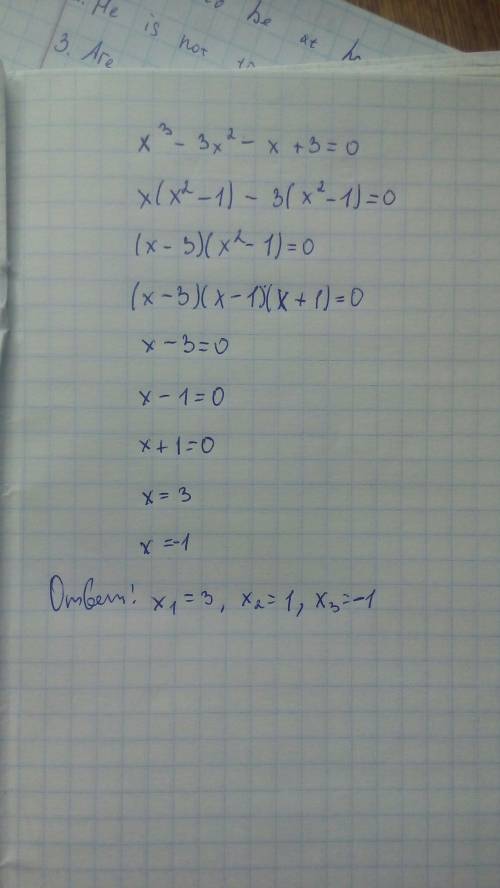 He be at
is not
3. Are
x³ - 3x² - x + 3 = 0
x(x² - 1) - 3(x² - 1) = 0
(x - 3)(x² - 1) = 0
(x - 3)(x - 1)(x + 1) = 0
x - 3 = 0
x - 1 = 0
x + 1 = 0
x = 3
x = -1
Ответ: x₁ = 3, x₂ = 1, x₃ = -1